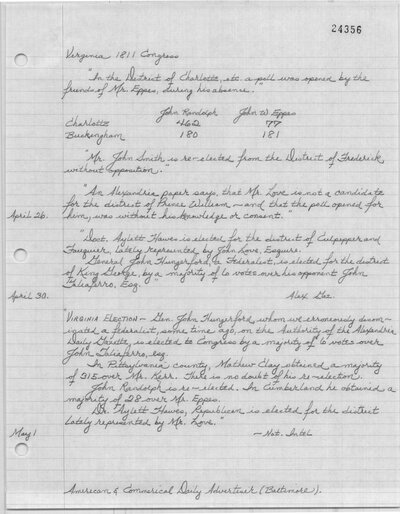 24356
Virginia 1811 Congress
"In the District of Charlotte, etc. a poll was opened by the
friends of Mr. Eppes, during his absence."
John Randolph John W. Eppes
Charlotte 462 77
Buckingham 180 181
"Mr. John Smith is re-elected from the District of Frederick,
without opposition."
"An Alexandria paper says, that Mr. Love is not a candidate
for the district of Prince William — and that the poll opened for
April 26. him, was without his knowledge or consent."
"Doct. Aylett Hawes is elected for the district of Culpepper and
Fauquier, lately represented by John Love, Esquire.
"General John Hungerford, a Federalist, is elected for the district
of King George, by a majority of 6 votes over his opponent John
Taliaferro, Esq."
April 30. Alex. Gaz.
"VIRGINIA ELECTION — Gen. John Hungerford, whom we erroneously denom-
inated a federalist, some time ago, on the Authority of the Alexandria
Daily Gazette, is elected to Congress by a majority of 6 votes over
John Taliaferro, esq.
In Pittsylvania county, Mathew Clay obtained a majority
of 315 over Mr. Kerr. There is no doubt of his re-election.
John Randolph is re-elected. In Cumberland he obtained a
majority of 28 over Mr. Eppes.
Dr. Aylett Hawes, Republican is elected for the district
lately represented by Mr. Love."
May 1 — Nat. Intel
American & Commerical Daily Advertiser (Baltimore).